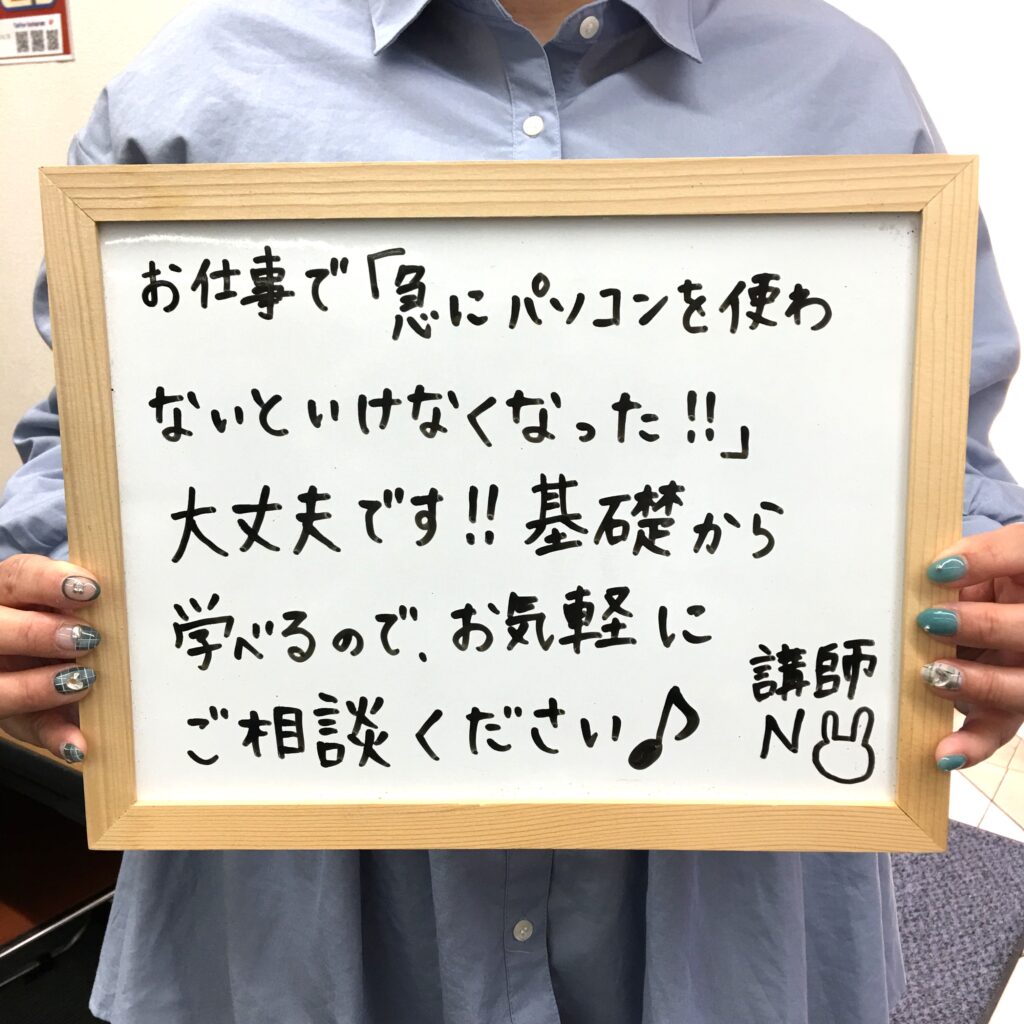 お仕事で「急にパソコンを使わ
ないといけなくなった!!」
大丈夫です!!基礎から
学べるので、お気軽に
ご相談ください♪
講師
N